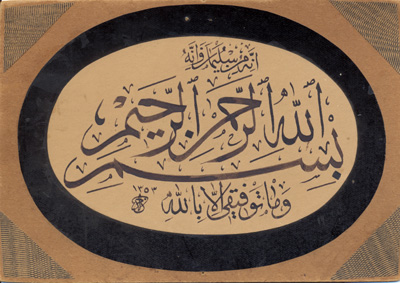 إنه من سليمان وإنه
بسم الله الرحمن الرحيم
وما توفيقي إلا بالله
١٣٥٣